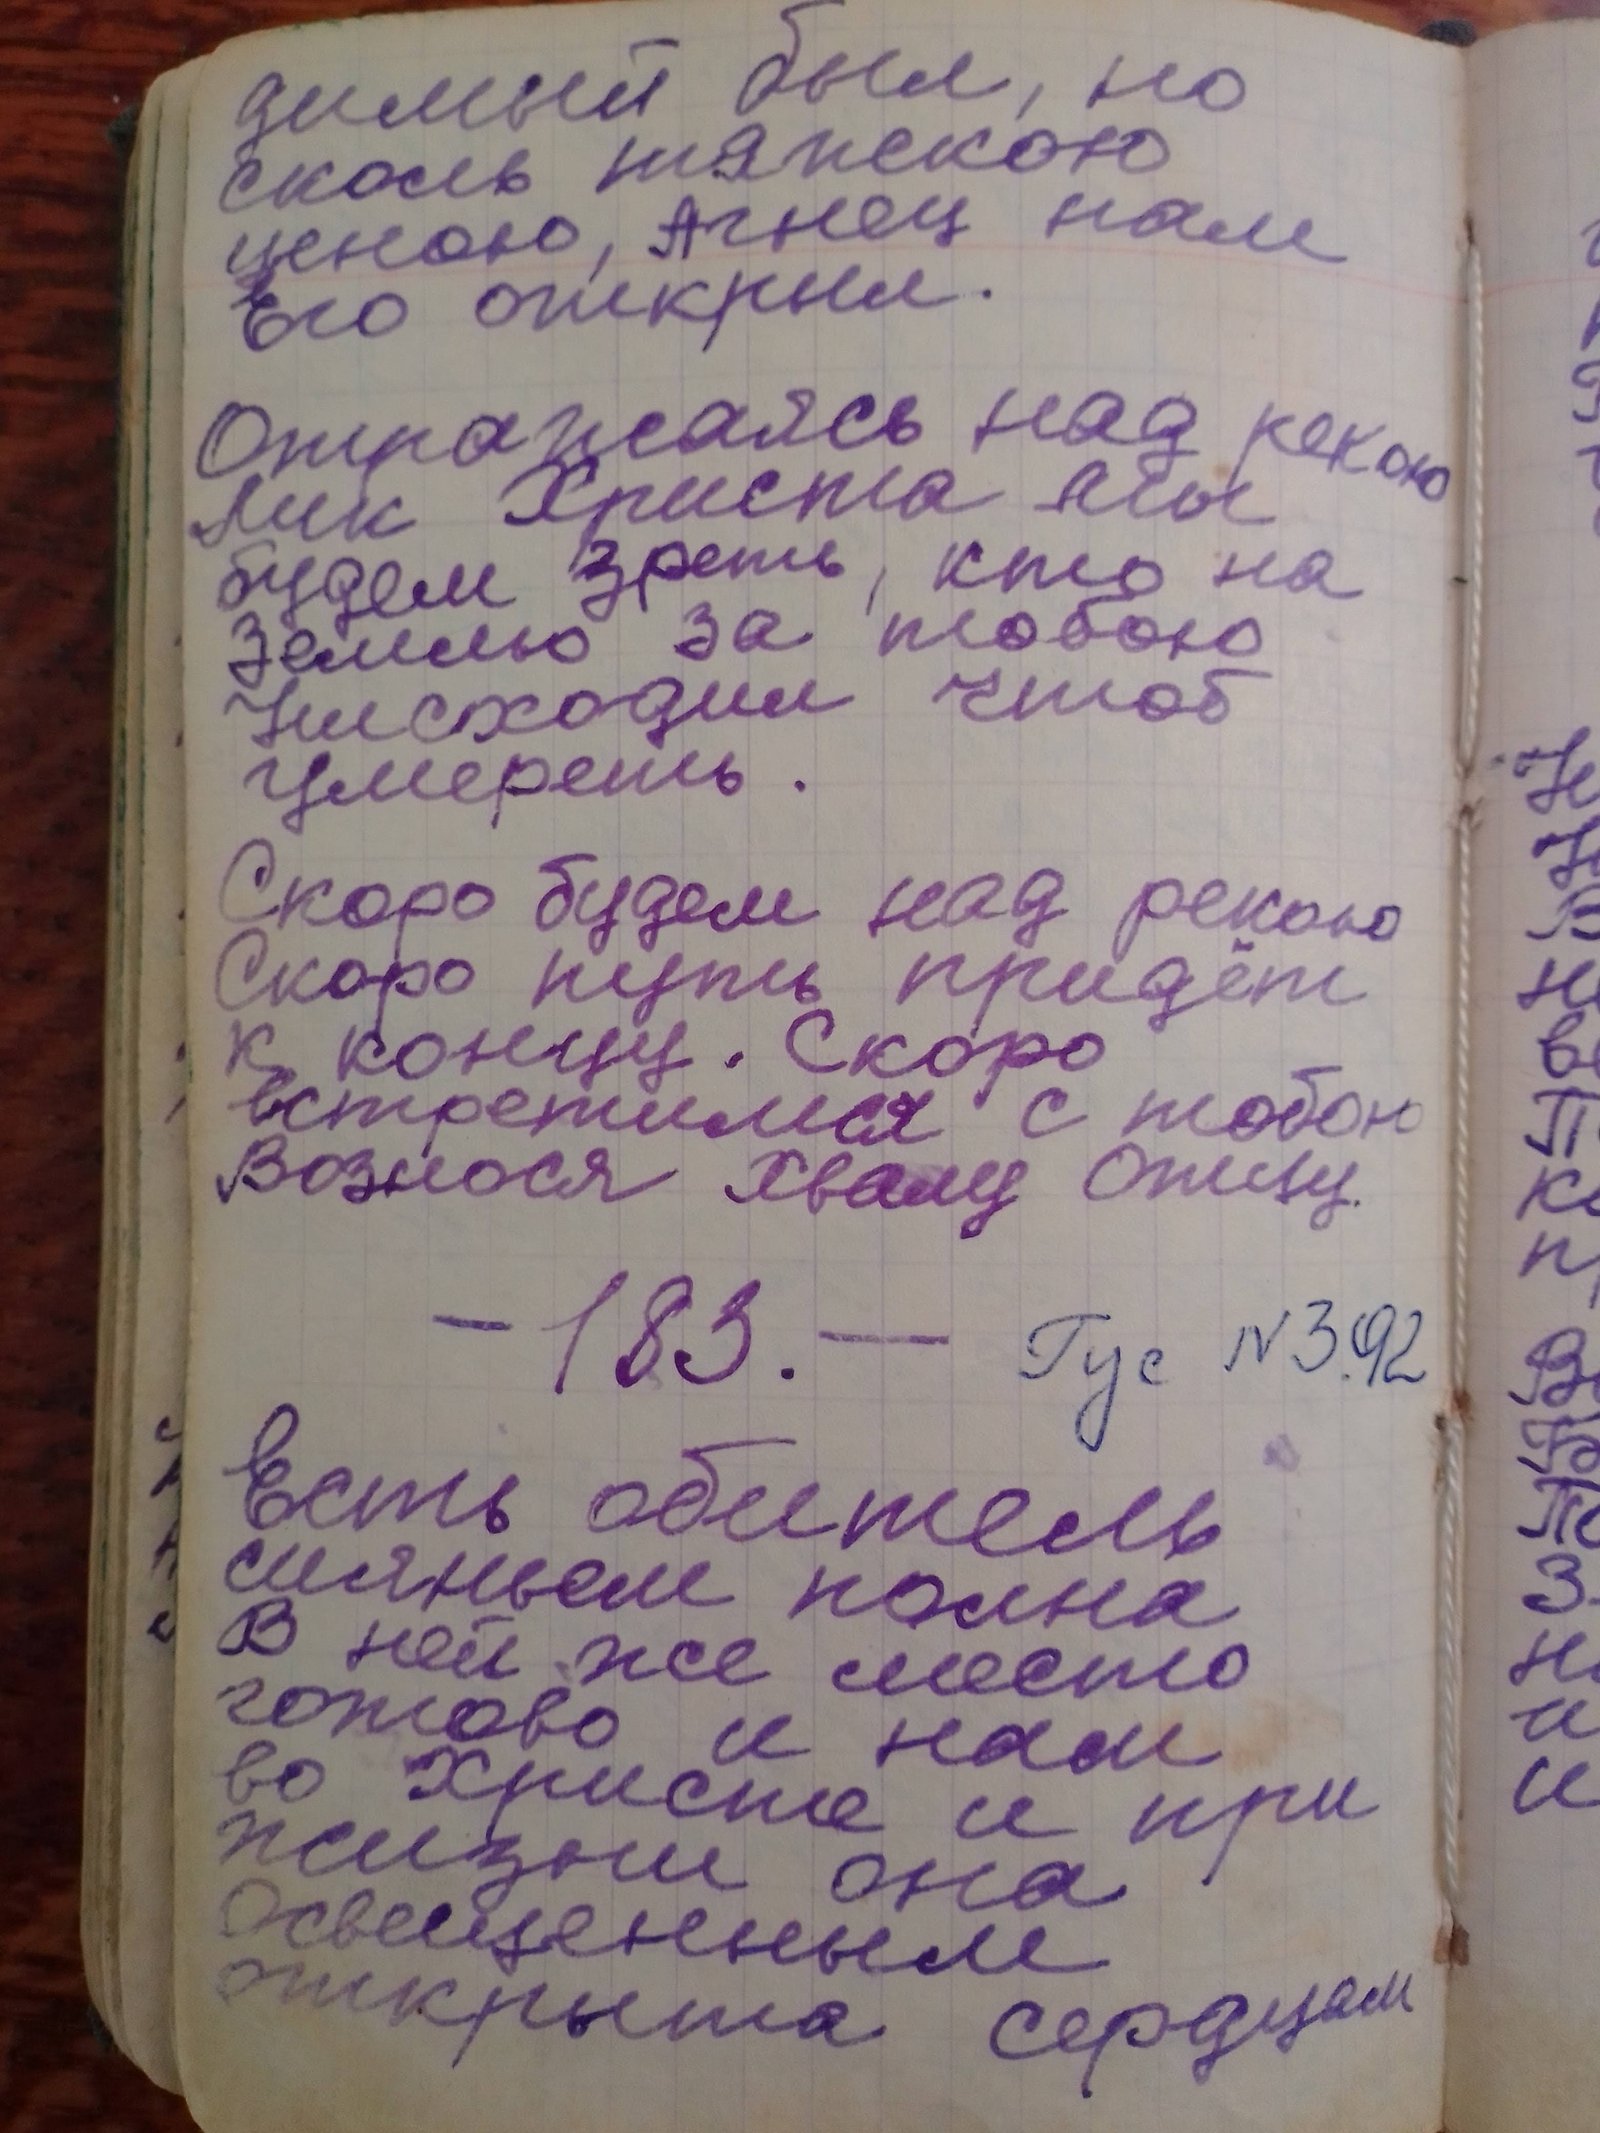 димый был, но
сколь тяжскою
ценою, Агнец нам
Его открыл.
Отражаясь над рекою
Лик Христа Мы
будем зреть, кто на
Землю за тобою
Нисходил чтоб
умереть.
Скоро будем над рекою
Скоро путь придёт
к концу. Скоро
встретимся с тобою
Вознося хвалу Отцу.
- 183. - Гус №3.92
Есть обитель
сияньем полна
В ней же место
готово и нам
во Христе и при
жизни она
Освещенным
открыта сердцам